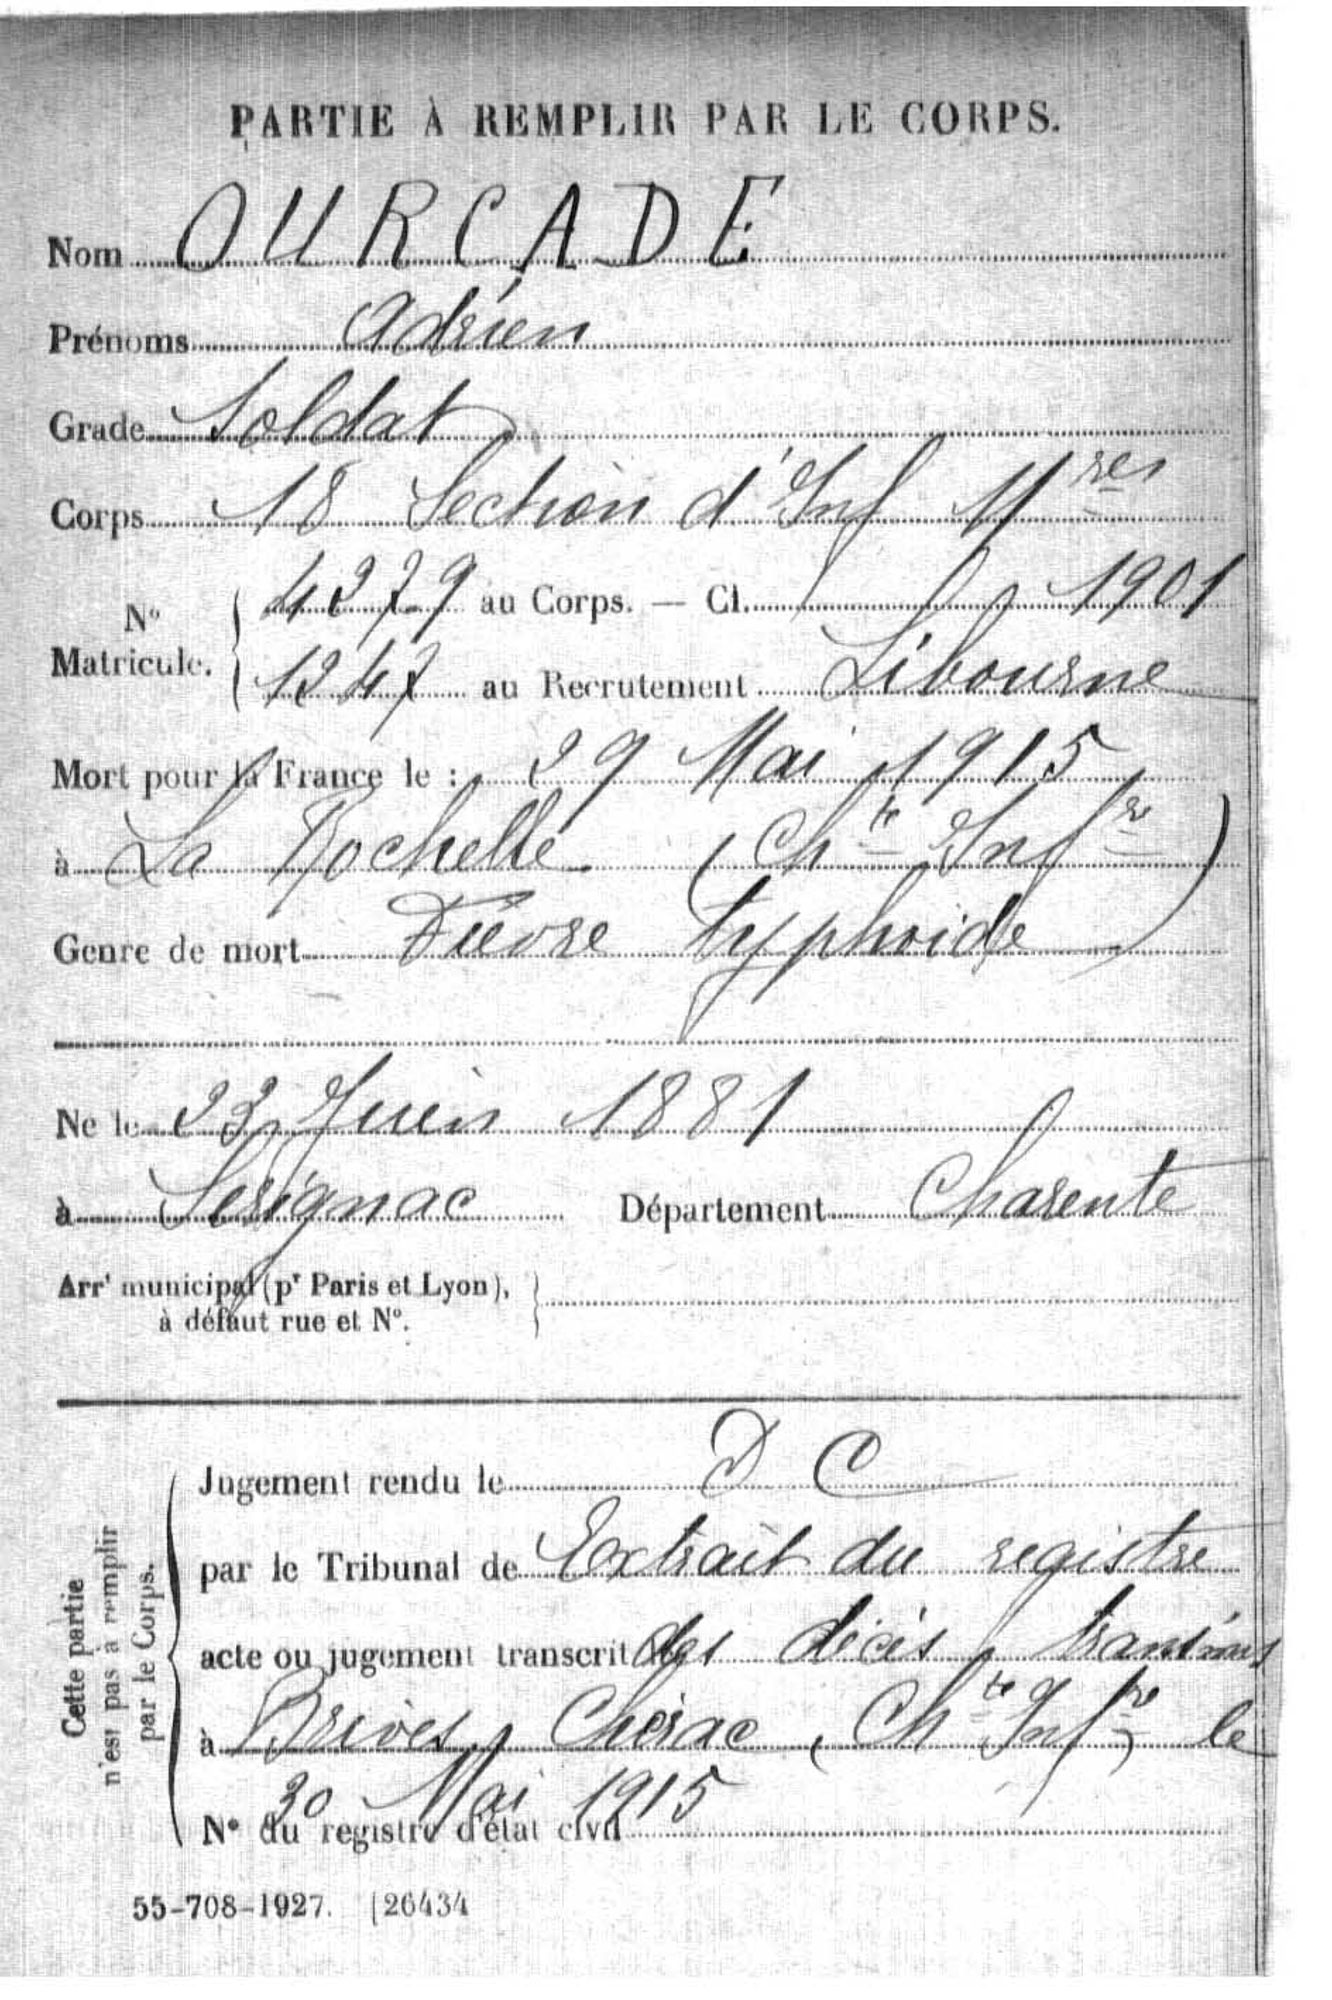 PARTIE À REMPLIR PAR LE CORPS.
Nom OURCADE
Prénoms Adrien
Grade Soldat
Corps 18 Section d'Inf Mres
No
Matricule. 4279 au Corps. — Cl. 1901
1247 au Recrutement Libourne
Mort pour la France le : 29 Mai 1915
à La Rochelle (Chte Infre)
Genre de mort Fièvre typhoide
Ne le 23 Juin 1881
à Sérignac Département Charente
Arrt municipal (pr Paris et Lyon),
à défaut rue et No.
Cette partie
n'est pas à remplir
par le Corps.
Jugement rendu le D C
par le Tribunal de Extrait du registre
acte ou jugement transcrit le des décès, transmis
à Brives, Chérac (Chte Infre) le
30 Mai 1915
No du registre d'état civil
55-708-1927. [26434